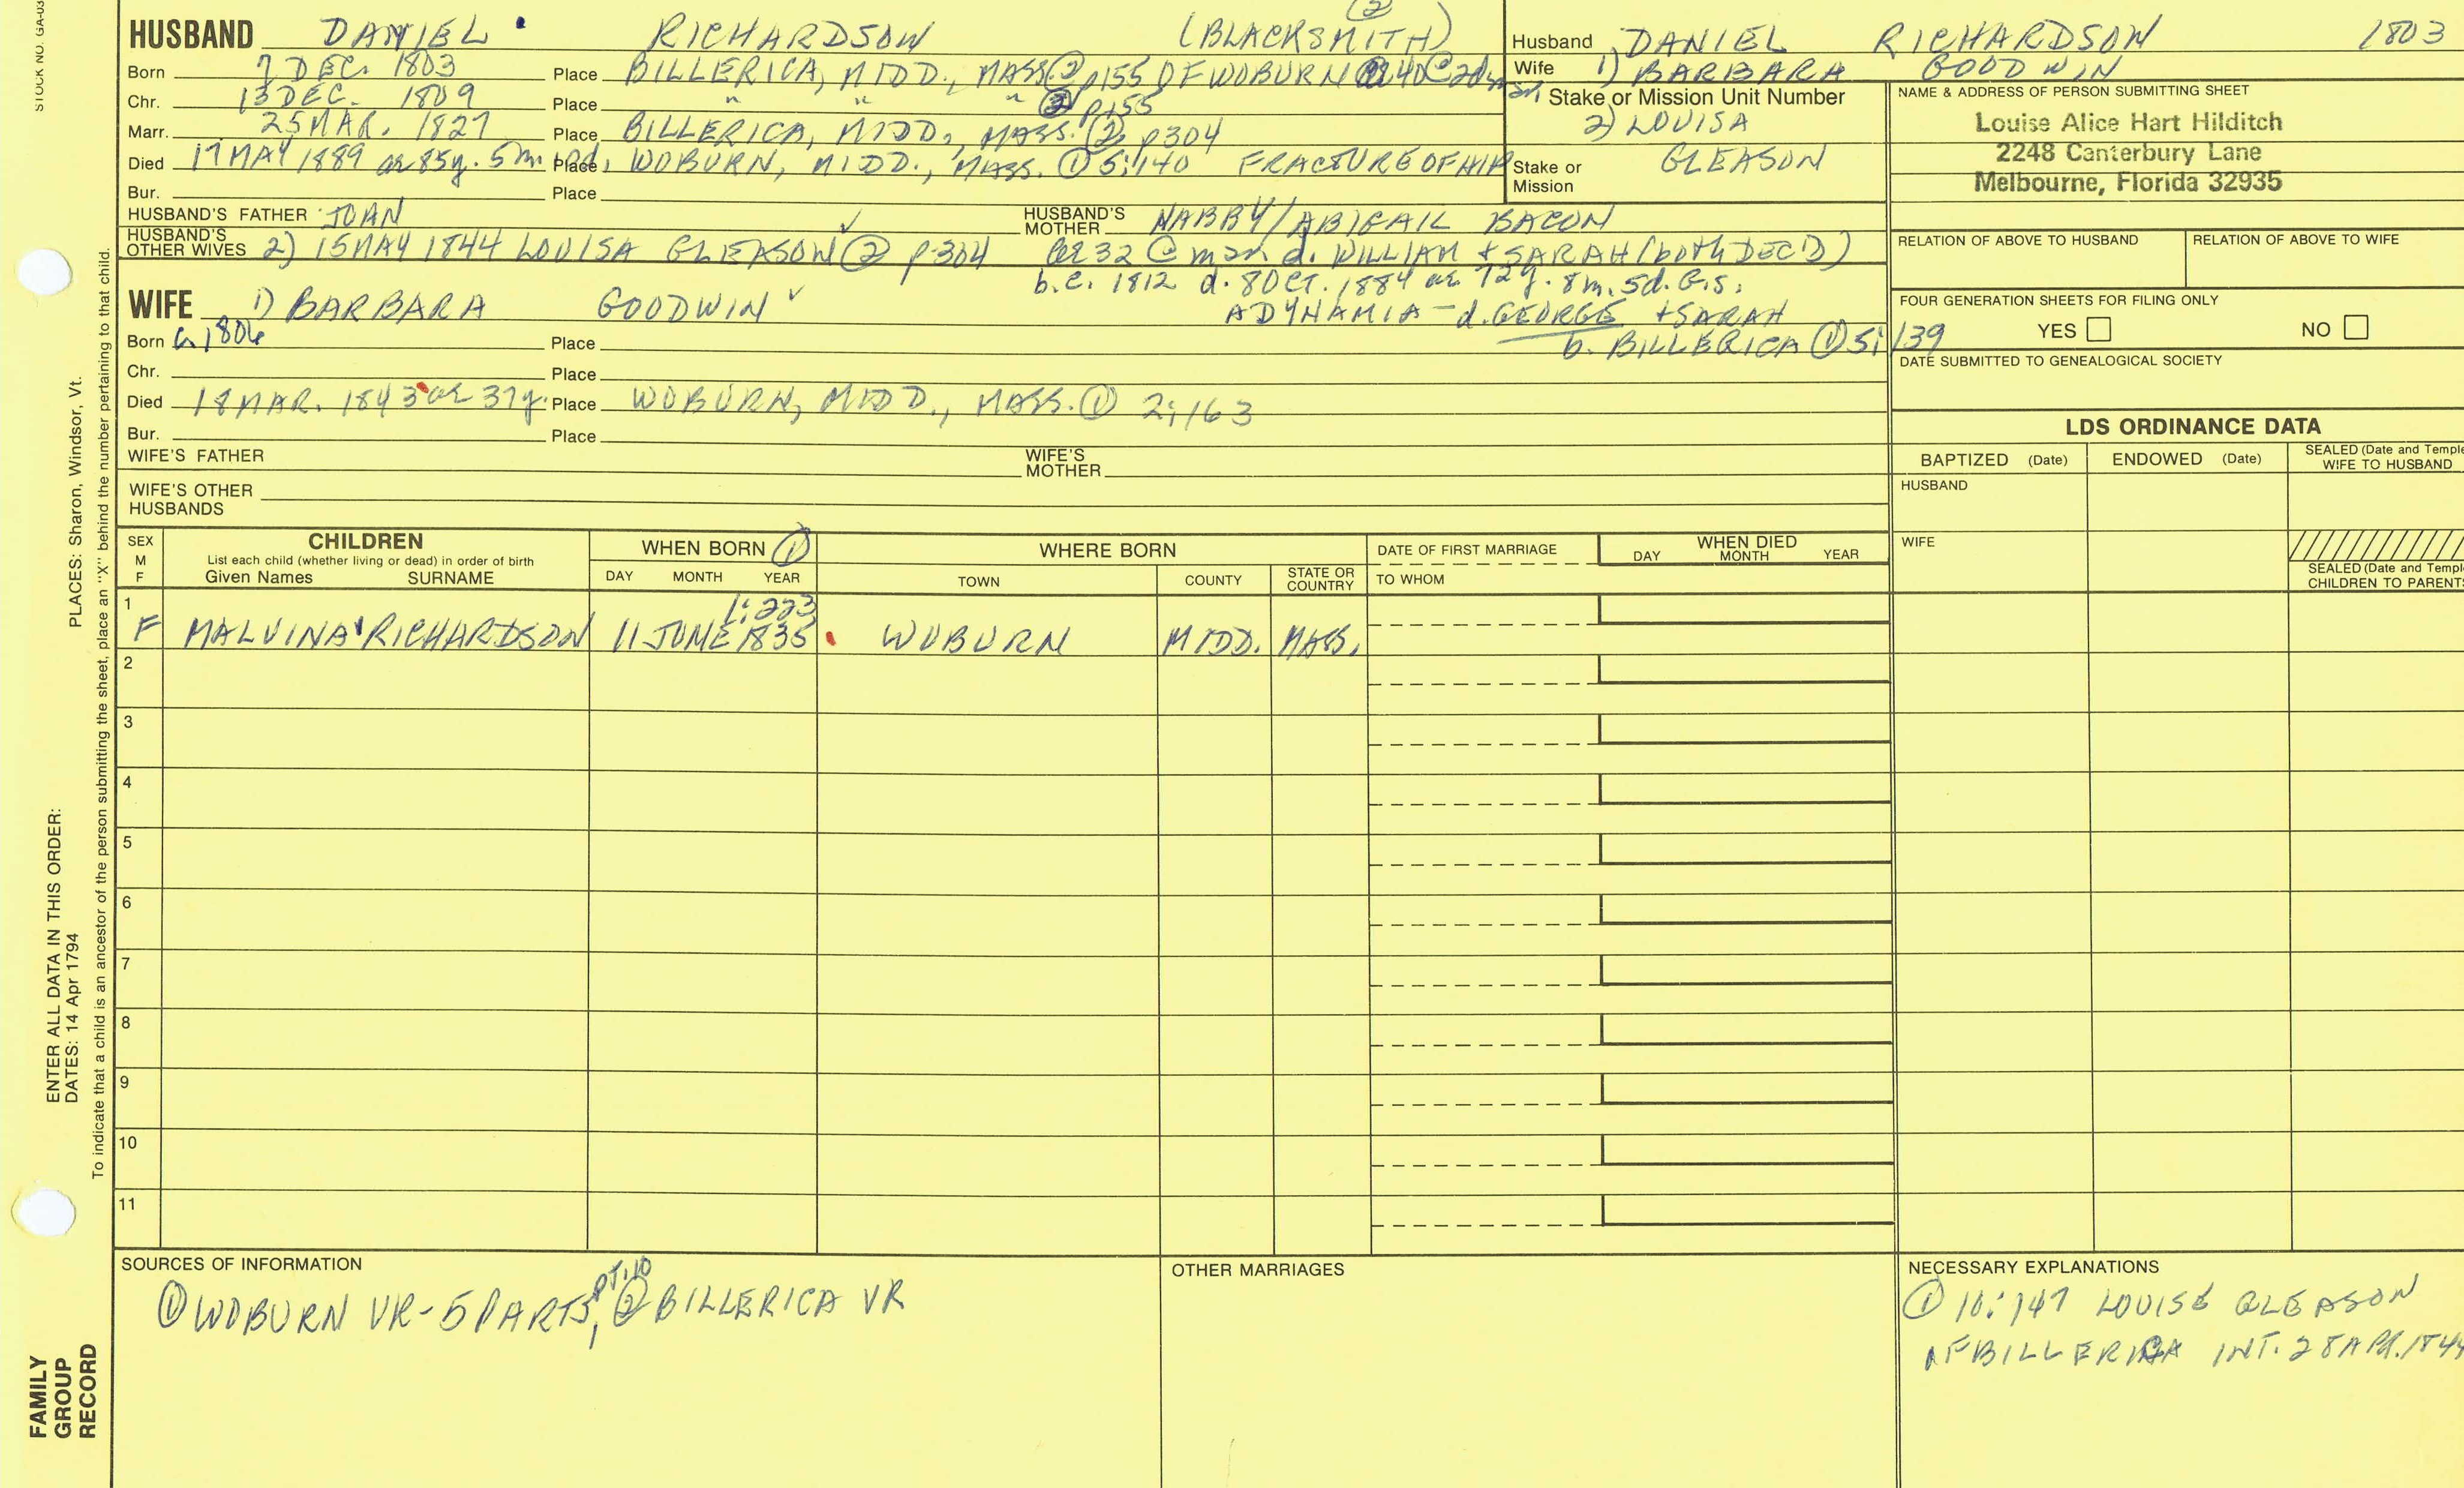 STOCK NO. GA-03
HUSBAND DANIEL RICHARDSON (BLACKSMITH) ②
Born 7 DEC. 1803 Place BILLERICA, MIDD., MASS. ② p155 OF WOBURN ae 40 @ 2d mar.
Chr. 13 DEC. 1809 Place " " " ② p155
Marr. 25 MAR. 1827 Place BILLERICA, MIDD., MASS. ② p304
Died 17 MAY 1889 ae 85y. 5m. 10d. Place WOBURN, MIDD., MASS. ① 5:140 FRACTURE OF HIP
Bur. Place
HUSBAND'S FATHER JOHN HUSBAND'S MOTHER NABBY/ABIGAIL BACON
HUSBAND'S OTHER WIVES 2) 15 MAY 1844 LOUISA GLEASON ② p304 ae 32 @ mar. d. WILLIAM + SARAH (both DEC'D)
b.c. 1812 d. 8 OCT. 1884 ae 72y. 8m. 5d. G.S.
ADYNAMIA - d. GEORGE + SARAH
b. BILLERICA ① 5:139
WIFE 1) BARBARA GOODWIN
Born c. 1806 Place
Chr. Place
Died 18 MAR. 1843 ae 37y. Place WOBURN, MIDD., MASS. ① 2:163
Bur. Place
WIFE'S FATHER WIFE'S MOTHER
WIFE'S OTHER HUSBANDS
Husband DANIEL RICHARDSON 1803
Wife 1) BARBARA GOODWIN
Stake or Mission Unit Number
2) LOUISA
Stake or Mission GLEASON
NAME & ADDRESS OF PERSON SUBMITTING SHEET
Louise Alice Hart Hilditch
2248 Canterbury Lane
Melbourne, Florida 32935
RELATION OF ABOVE TO HUSBAND RELATION OF ABOVE TO WIFE
FOUR GENERATION SHEETS FOR FILING ONLY
YES NO
DATE SUBMITTED TO GENEALOGICAL SOCIETY
LDS ORDINANCE DATA
BAPTIZED (Date) ENDOWED (Date) SEALED (Date and Temple
WIFE TO HUSBAND
HUSBAND
WIFE
SEALED (Date and Templ
CHILDREN TO PARENTS
SEX M F
CHILDREN
List each child (whether living or dead) in order of birth
Given Names SURNAME
WHEN BORN ①
DAY MONTH YEAR
WHERE BORN
TOWN COUNTY STATE OR COUNTRY
DATE OF FIRST MARRIAGE
TO WHOM
WHEN DIED
DAY MONTH YEAR
1 1:223
F MALVINA RICHARDSON 11 JUNE 1835 WOBURN MIDD. MASS.
2
3
4
5
6
7
8
9
10
11
SOURCES OF INFORMATION
① WOBURN VR-5 PARTS, PT.10 ② BILLERICA VR
OTHER MARRIAGES
NECESSARY EXPLANATIONS
① 10:147 LOUISE GLEASON
OF BILLERICA INT. 28 APR. 1844
PLACES: Sharon, Windsor, Vt.
ENTER ALL DATA IN THIS ORDER:
DATES: 14 Apr 1794
To indicate that a child is an ancestor of the person submitting the sheet, place an "X" behind the number pertaining to that child.
FAMILY
GROUP
RECORD